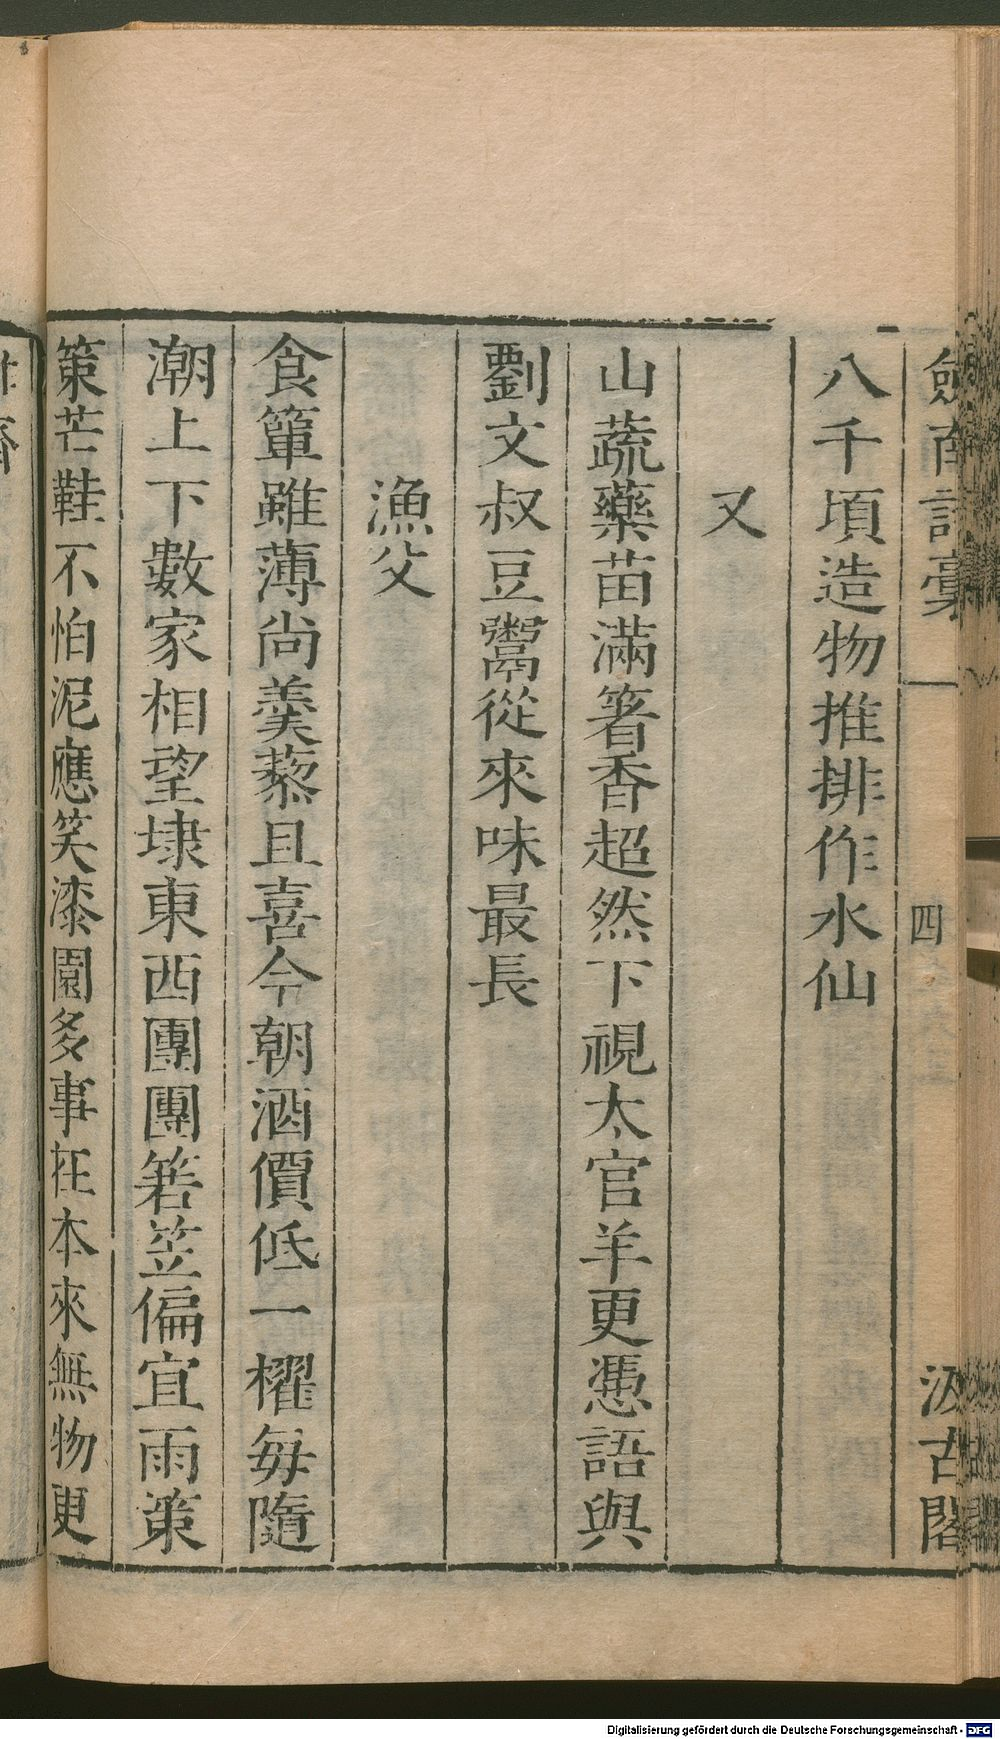 劍南詩稾
四
汲古閣
八千頃造物推排作水仙
又
山蔬藥苗滿箸香超然下視太官羊更憑語與
劉文叔豆鬻從來味最長
漁父
食簞雖薄尚羹藜且喜今朝酒價低一櫂每隨
潮上下數家相望埭東西團團箬笠偏宜雨策
策芒鞋不怕泥應笑漆園多事在本來無物更
Digitalisierung gefördert durch die Deutsche Forschungsgemeinschaft - DFG